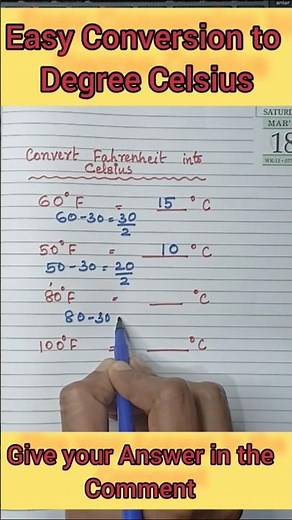 Easy Conversion to
Degree Celsius
SATURD
MAR'
18
Convert Fahrenheit into
Celsius
60°F = 15 °C
60-30 = 30/2
50°F = 10 °C
50-30 = 20/2
80°F = ___ °C
80-30
100°F = ___ °C
Give your Answer in the
Comment